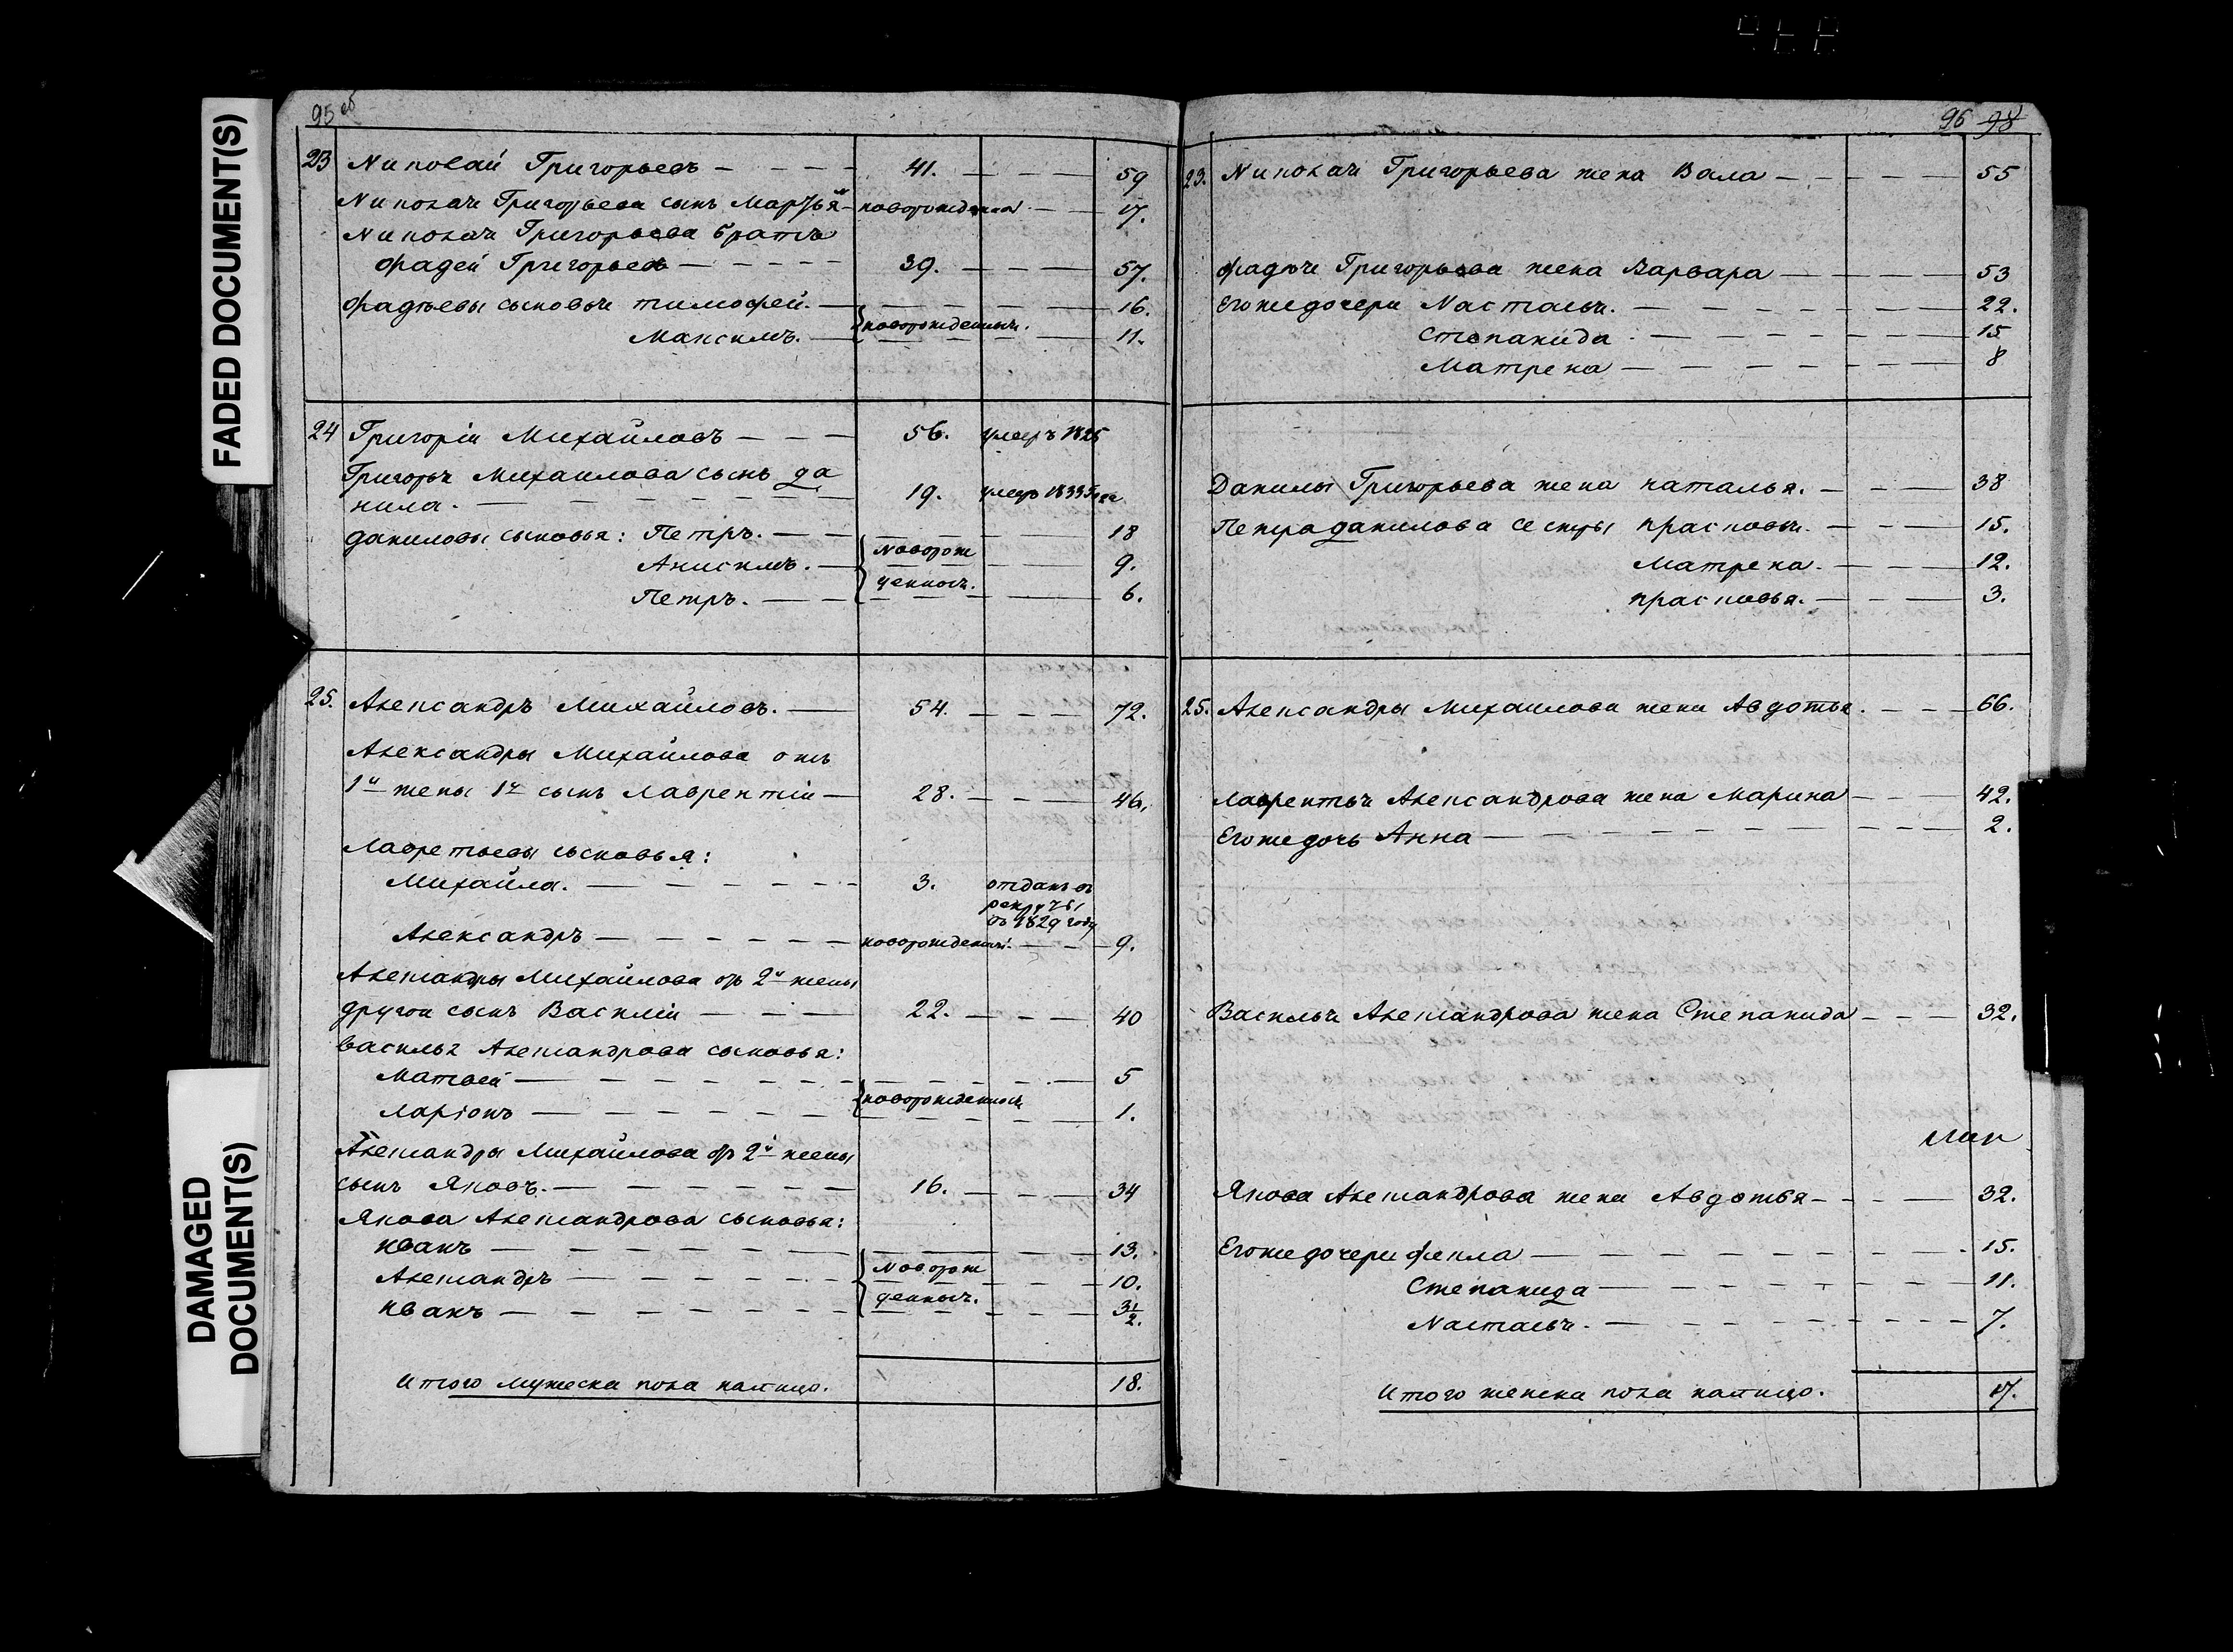 FADED DOCUMENT(S)
DAMAGED DOCUMENT(S)
95 об
23 Николай Григорьевъ 41. 59
Николаи Григорьева сынъ новорожденной 17.
Николаи Григорьева братъ
Фадеи Григорьевъ 39. 57.
Фадѣевы сыновьи тимофей. 16.
Максимъ. новорожденныи. 11.
24 Григоріи Михайловъ 56. умеръ 1825
Григорьи Михаилова сынъ да
нила. 19. умеръ 1833 года
даниловы сыновья: Петръ. 18
Анисимъ. Новорож 9.
Петръ. денныи. 6.
25. Александръ Михайловъ. 54. 72.
Александры Михайлова отъ
1й жены 1й сынъ Лаврентіи 28. 46.
Лавретьевы сыновья:
Михайла. 3. отданъ въ
рекруты
въ 1829 году
Александръ новорожденный. 9.
Александры Михайлова отъ 2й жены
другои сынъ Василіи 22. 40
Василья Александрова сыновья:
Матвей 5
Ларіонъ новорожденныи 1.
Александры Михайлова отъ 2й жены
сынъ Яковъ. 16. 34
Якова Александрова сыновья:
Иванъ 13.
Александръ Новорож 10.
Иванъ денныи. 3 1/2.
Итого мужеска пола налицо. 18.
96 98
23. Николаи Григорьева жена 55
Фадѣи Григорьева жена Варвара 53
Егоже дочери Настасьи. 22.
Степанида 15
Матрена 8
Данилы Григорьева жена наталья. 38
Петра данилова сестры прасковьи. 15.
Матрена. 12.
прасковья. 3.
25. Александры Михаилова жена Авдотья. 66.
Лаврентьи Александрова жена Марина 42.
Егоже дочь Анна 2.
Васильи Александрова жена Степанида 32.
Якова Александрова жена Авдотья 32.
Егоже дочери фекла 15.
Степанида 11.
Настасьи. 7.
Итого женска пола налицо. 17.